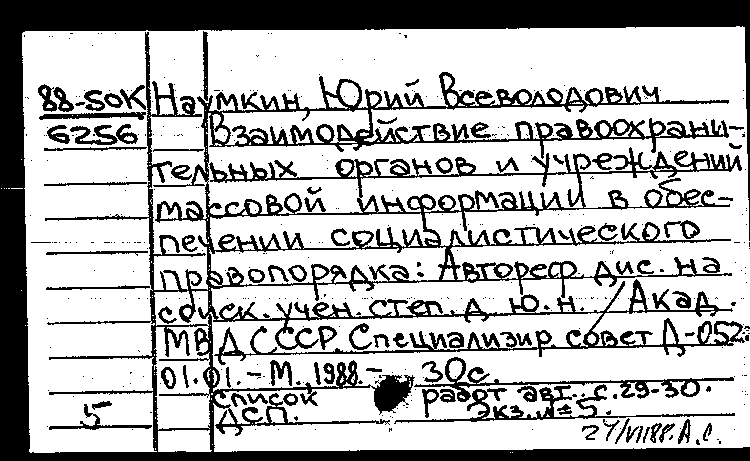 88-5ОК Наумкин, Юрий Всеволодович
6256 Взаимодействие правоохрани-
тельных органов и учреждений
массовой информации в обес-
печении социалистического
правопорядка: Автореф. дис. на
соиск. учен. степ. д. ю. н. / Акад.
МВД СССР. Специализир. совет Д-052.
01.01. - М., 1988. - 30с.
список работ авт.: с. 29-30.
5 ДСП. Экз. № 5.
24/VI188. А.С.